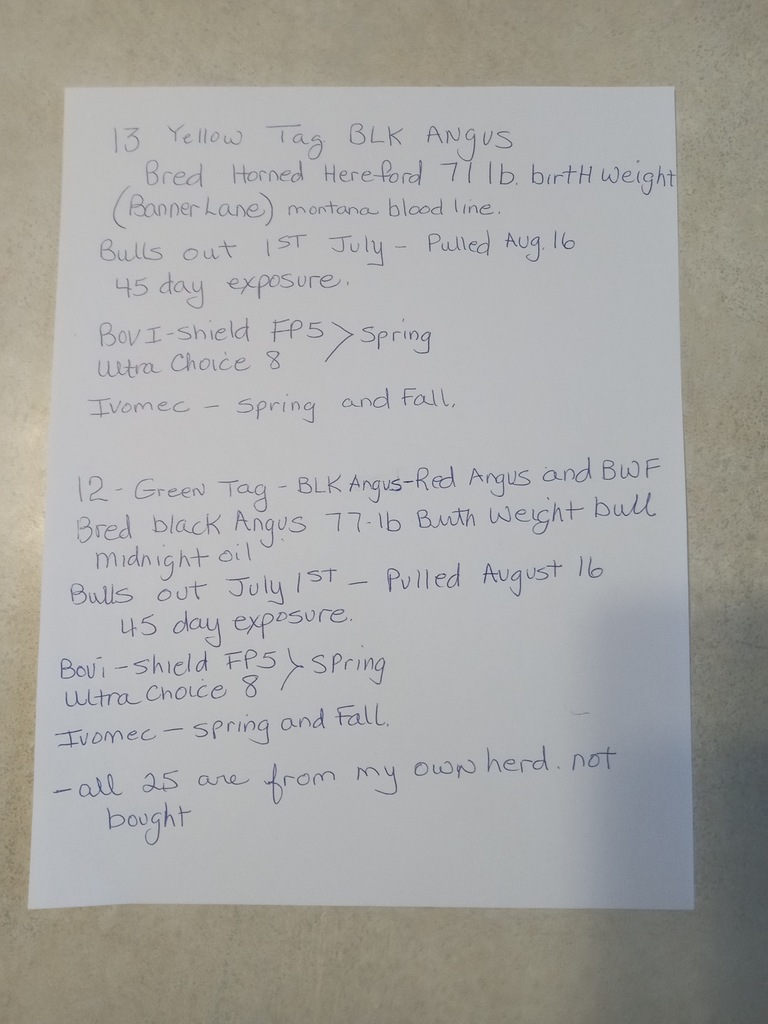 13 Yellow Tag BLK ANGUS
Bred Horned Hereford 71 lb. birtH weight
(Banner Lane) montana blood line.
Bulls out 1ST July - Pulled Aug. 16
45 day exposure.
BovI-shield FP5 > Spring
Ultra Choice 8
Ivomec - Spring and Fall.
12 - Green Tag - BLK Angus-Red Angus and BWF
Bred black Angus 77-lb Buth Weight bull
midnight oil
Bulls out July 1ST - Pulled August 16
45 day exposure.
Bovi-shield FP5 > Spring
Ultra Choice 8
Ivomec - spring and Fall.
- all 25 are from my own herd. not
bought